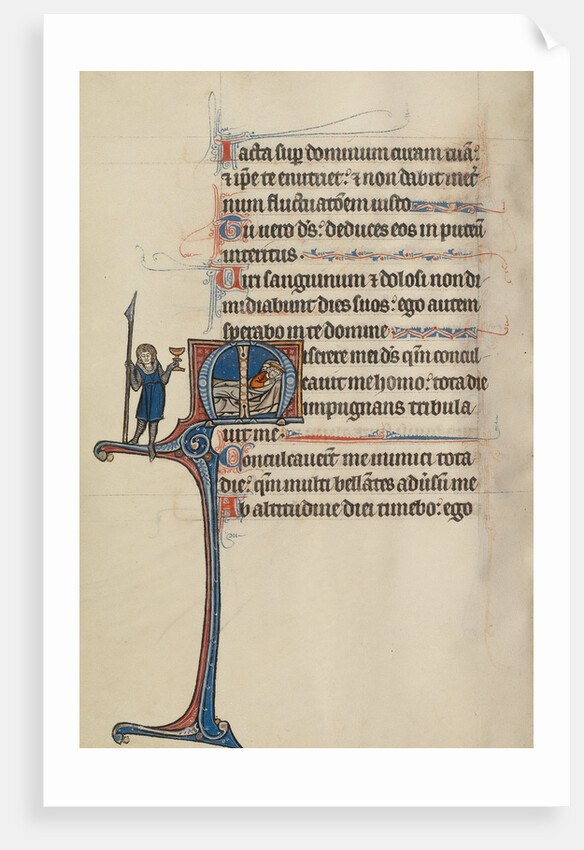 Iacta sup dominum curam tuã:
& ipe te enutriet: & non dabit met
num fluctuatõem iusto
Tu uero ds: deduces eos in puteũ
interitus.
Uiri sanguinum & dolosi non di
midiabunt dies suos: ego autem
sperabo in te domine
Miserere mei ds qm concul
cauit me homo: tota die
inpugnans tribula
uit me.
Conculcauert me inimici tota
die: qm multi bellãtes adusũ me
Ab altitudine diei timebo: ego